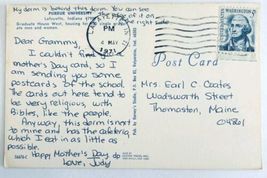 My dorm is behind this dorm. You can see
PURDUE UNIVERSITY
Lafayette, Indiana
Graduate House West, housing for
ate men and women
Dear Grammy,
I couldn't find a
mother's Day card, so I
am sending you some
postcards of the school.
The cards out here tend to
be very religious, with
Bibles, like the people.
Anyway, this dorm is next
to mine and has the cafeteria
which I eat in as little as
possible.
Happy Mother's Day,
Love, Judy
PM
4 MAY
1971
WASHINGTON
Post Card
Mrs. Earl C Coates
Wadsworth Street
Thomaston, Maine
04861